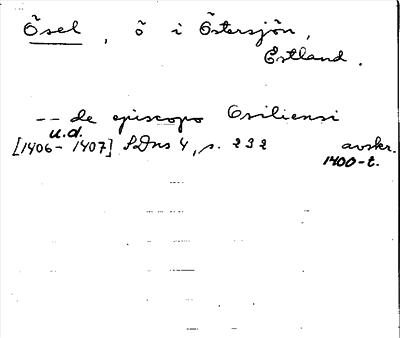 Ösel, ö i Östersjön,
Estland.
-- de episcopo Osiliensi
u.d.
[1406-1407] SDns 4, s. 232 avskr.
1400-t.